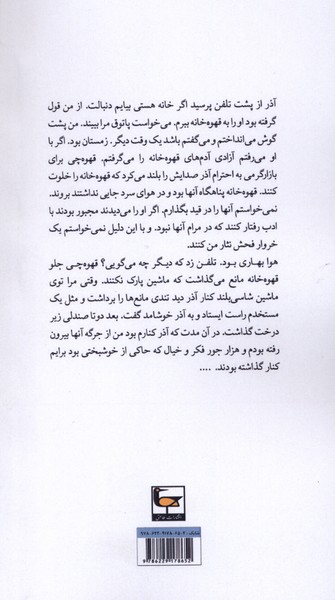 آذر از پشت تلفن پرسید اگر خانه هستی بیایم دنبالت. از من قول
گرفته بود او را به قهوه‌خانه ببرم. می‌خواست پاتوق مرا ببیند. من پشت
گوش می‌انداختم و می‌گفتم باشد یک وقت دیگر. زمستان بود. اگر با
او می‌رفتم آزادی آدم‌های قهوه‌خانه را می‌گرفتم. قهوه‌چی برای
بازارگرمی به احترام آذر صدایش را بلند می‌کرد که قهوه‌خانه را خلوت
کنند. قهوه‌خانه پناهگاه آنها بود و در هوای سرد جایی نداشتند بروند.
نمی‌خواستم آنها را در قید بگذارم. اگر او را می‌دیدند مجبور بودند با
ادب رفتار کنند که در مرام آنها نبود. و با این دلیل نمی‌خواستم یک
خروار فحش نثار من کنند.
هوا بهاری بود. تلفن زد که دیگر چه می‌گویی؟ قهوه‌چی جلو
قهوه‌خانه مانع می‌گذاشت که ماشین پارک نکنند. وقتی مرا توی
ماشین شاسی‌بلند کنار آذر دید تندی مانع‌ها را برداشت و مثل یک
مستخدم راست ایستاد و به آذر خوشامد گفت. بعد دوتا صندلی زیر
درخت گذاشت. در آن مدت که آذر کنارم بود من از جرگه آنها بیرون
رفته بودم و هزار جور فکر و خیال که حاکی از خوشبختی بود برایم
کنار گذاشته بودند. ....
9 786229 178652